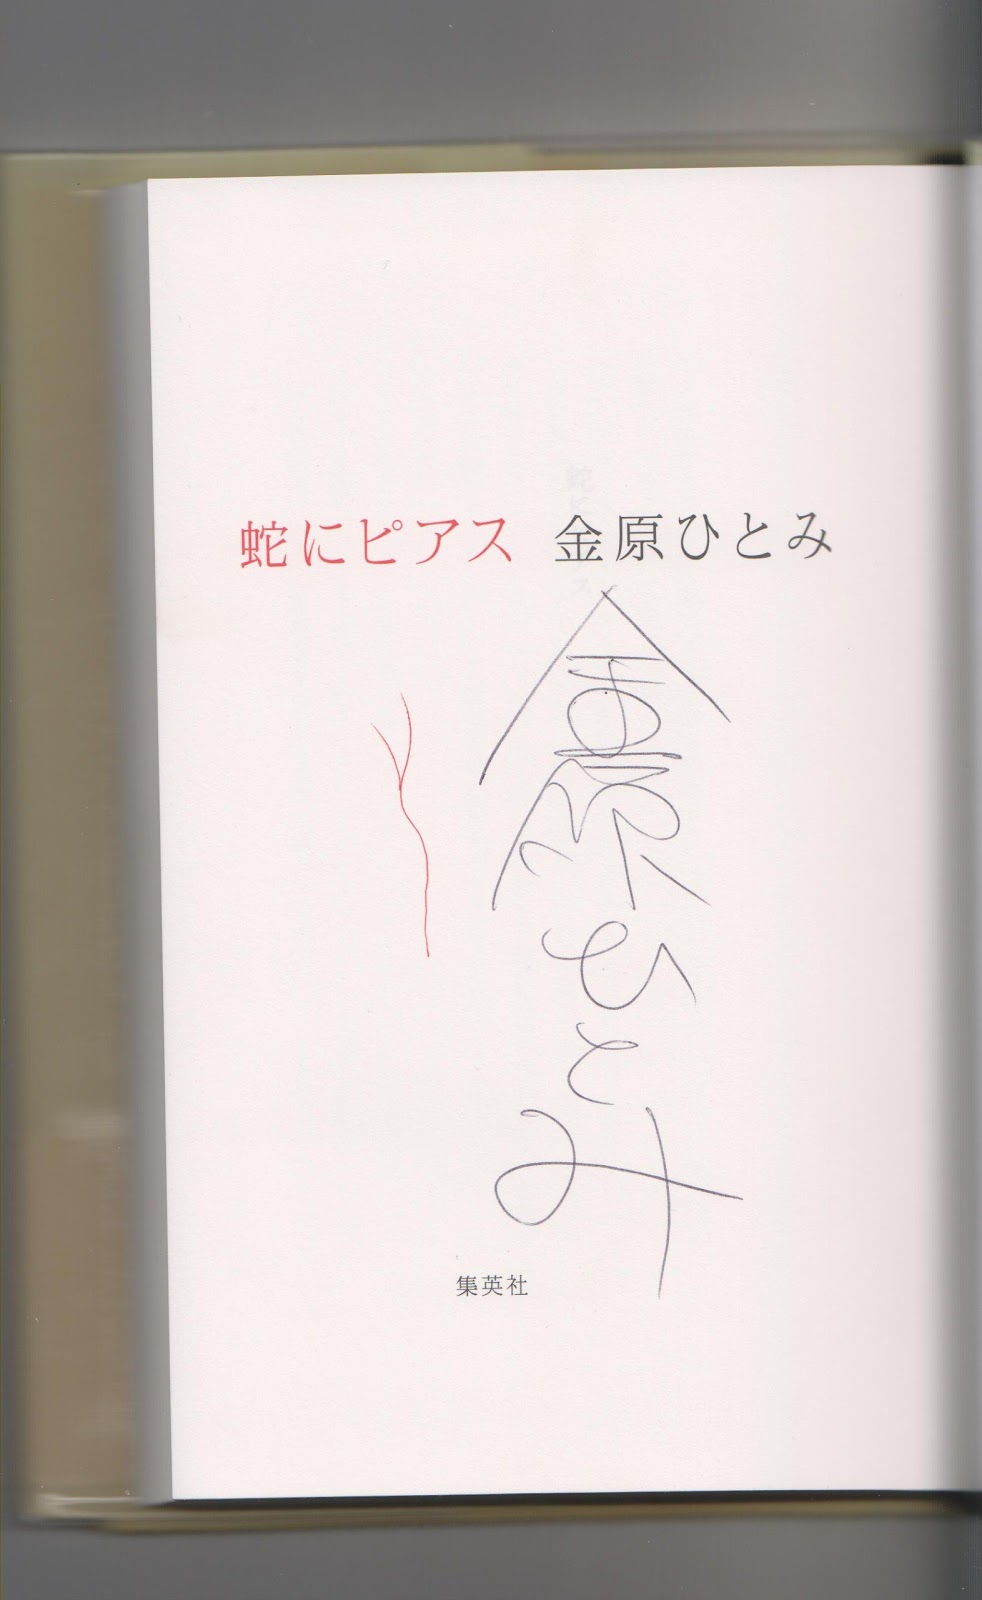 蛇にピアス 金原ひとみ
金原ひとみ
集英社